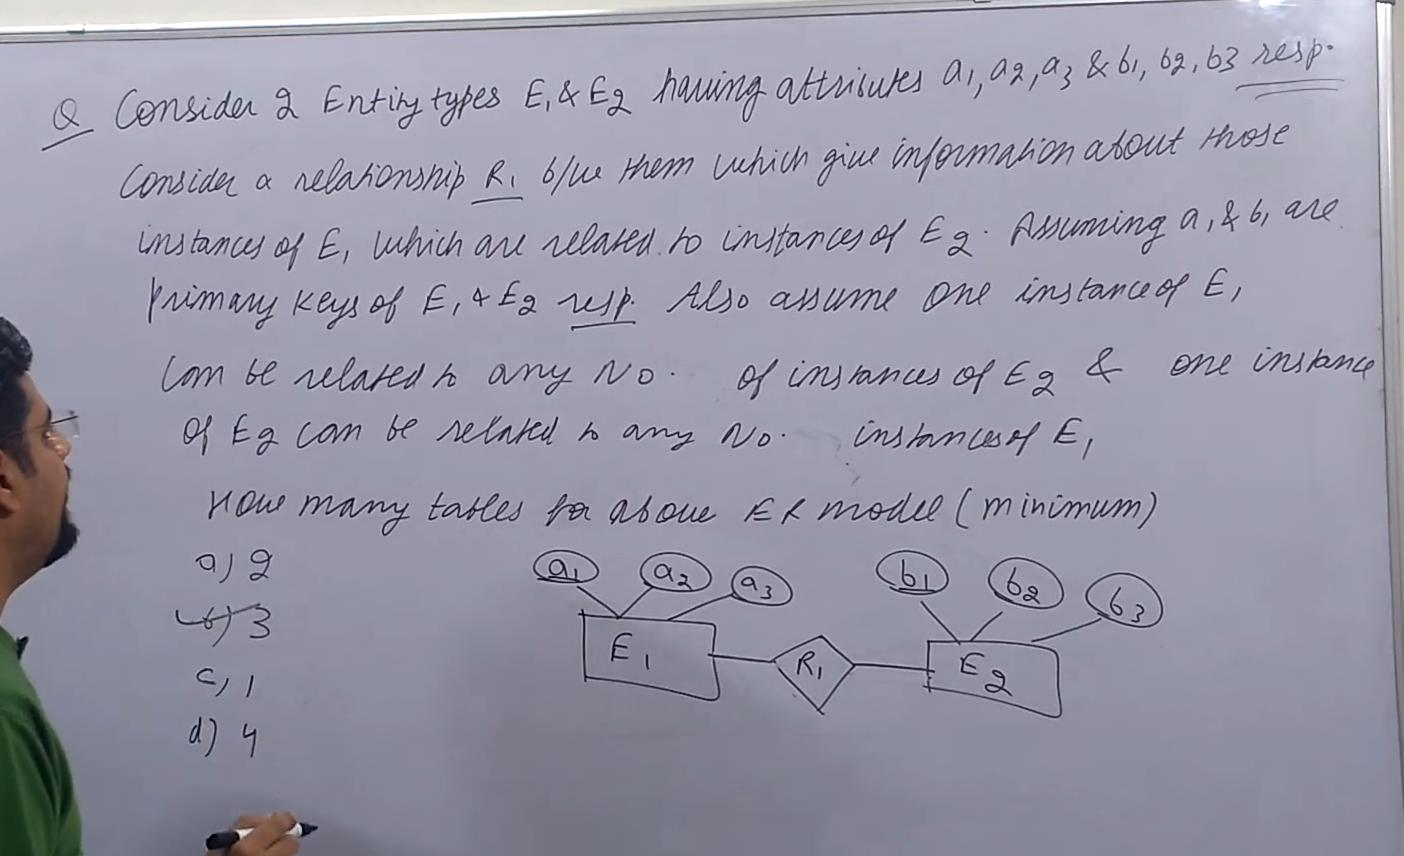 Q Consider 2 Entity types E1 & E2 having attributes a1, a2, a3 & b1, b2, b3 resp.
Consider a relationship R1 b/w them which give information about those
instances of E1 which are related to instances of E2. Assuming a1 & b1 are
Primary keys of E1 & E2 resp. Also assume one instance of E1
can be related to any No. of instances of E2 & one instance
of E2 can be related to any No. instances of E1
How many tables for above ER model (minimum)
a) 2
b) 3
c) 1
d) 4
a1 a2 a3 b1 b2 b3
E1 R1 E2